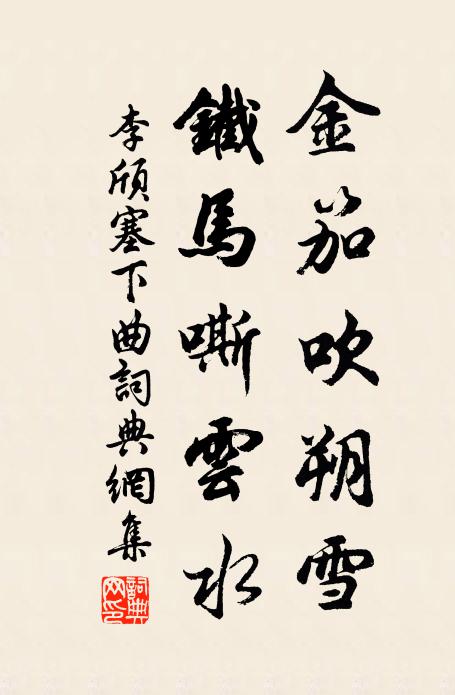 金笳吹朔雪
鐵馬嘶雲水
李頎塞下曲詞典網集
詞典網印